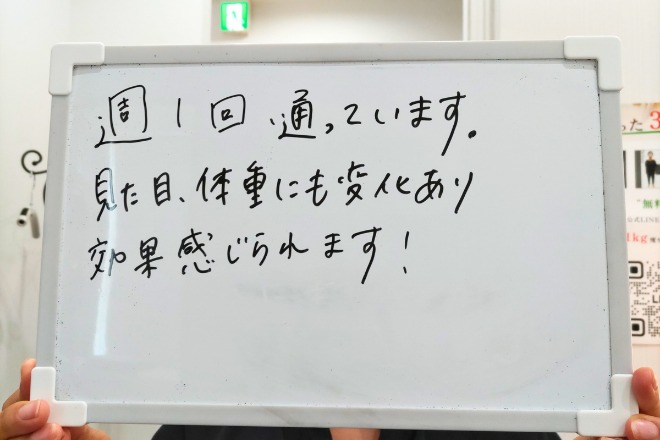 週1回通っています。
見た目、体重にも変化あり
効果感じられます!
った3
"無料
公式LINE
1kg